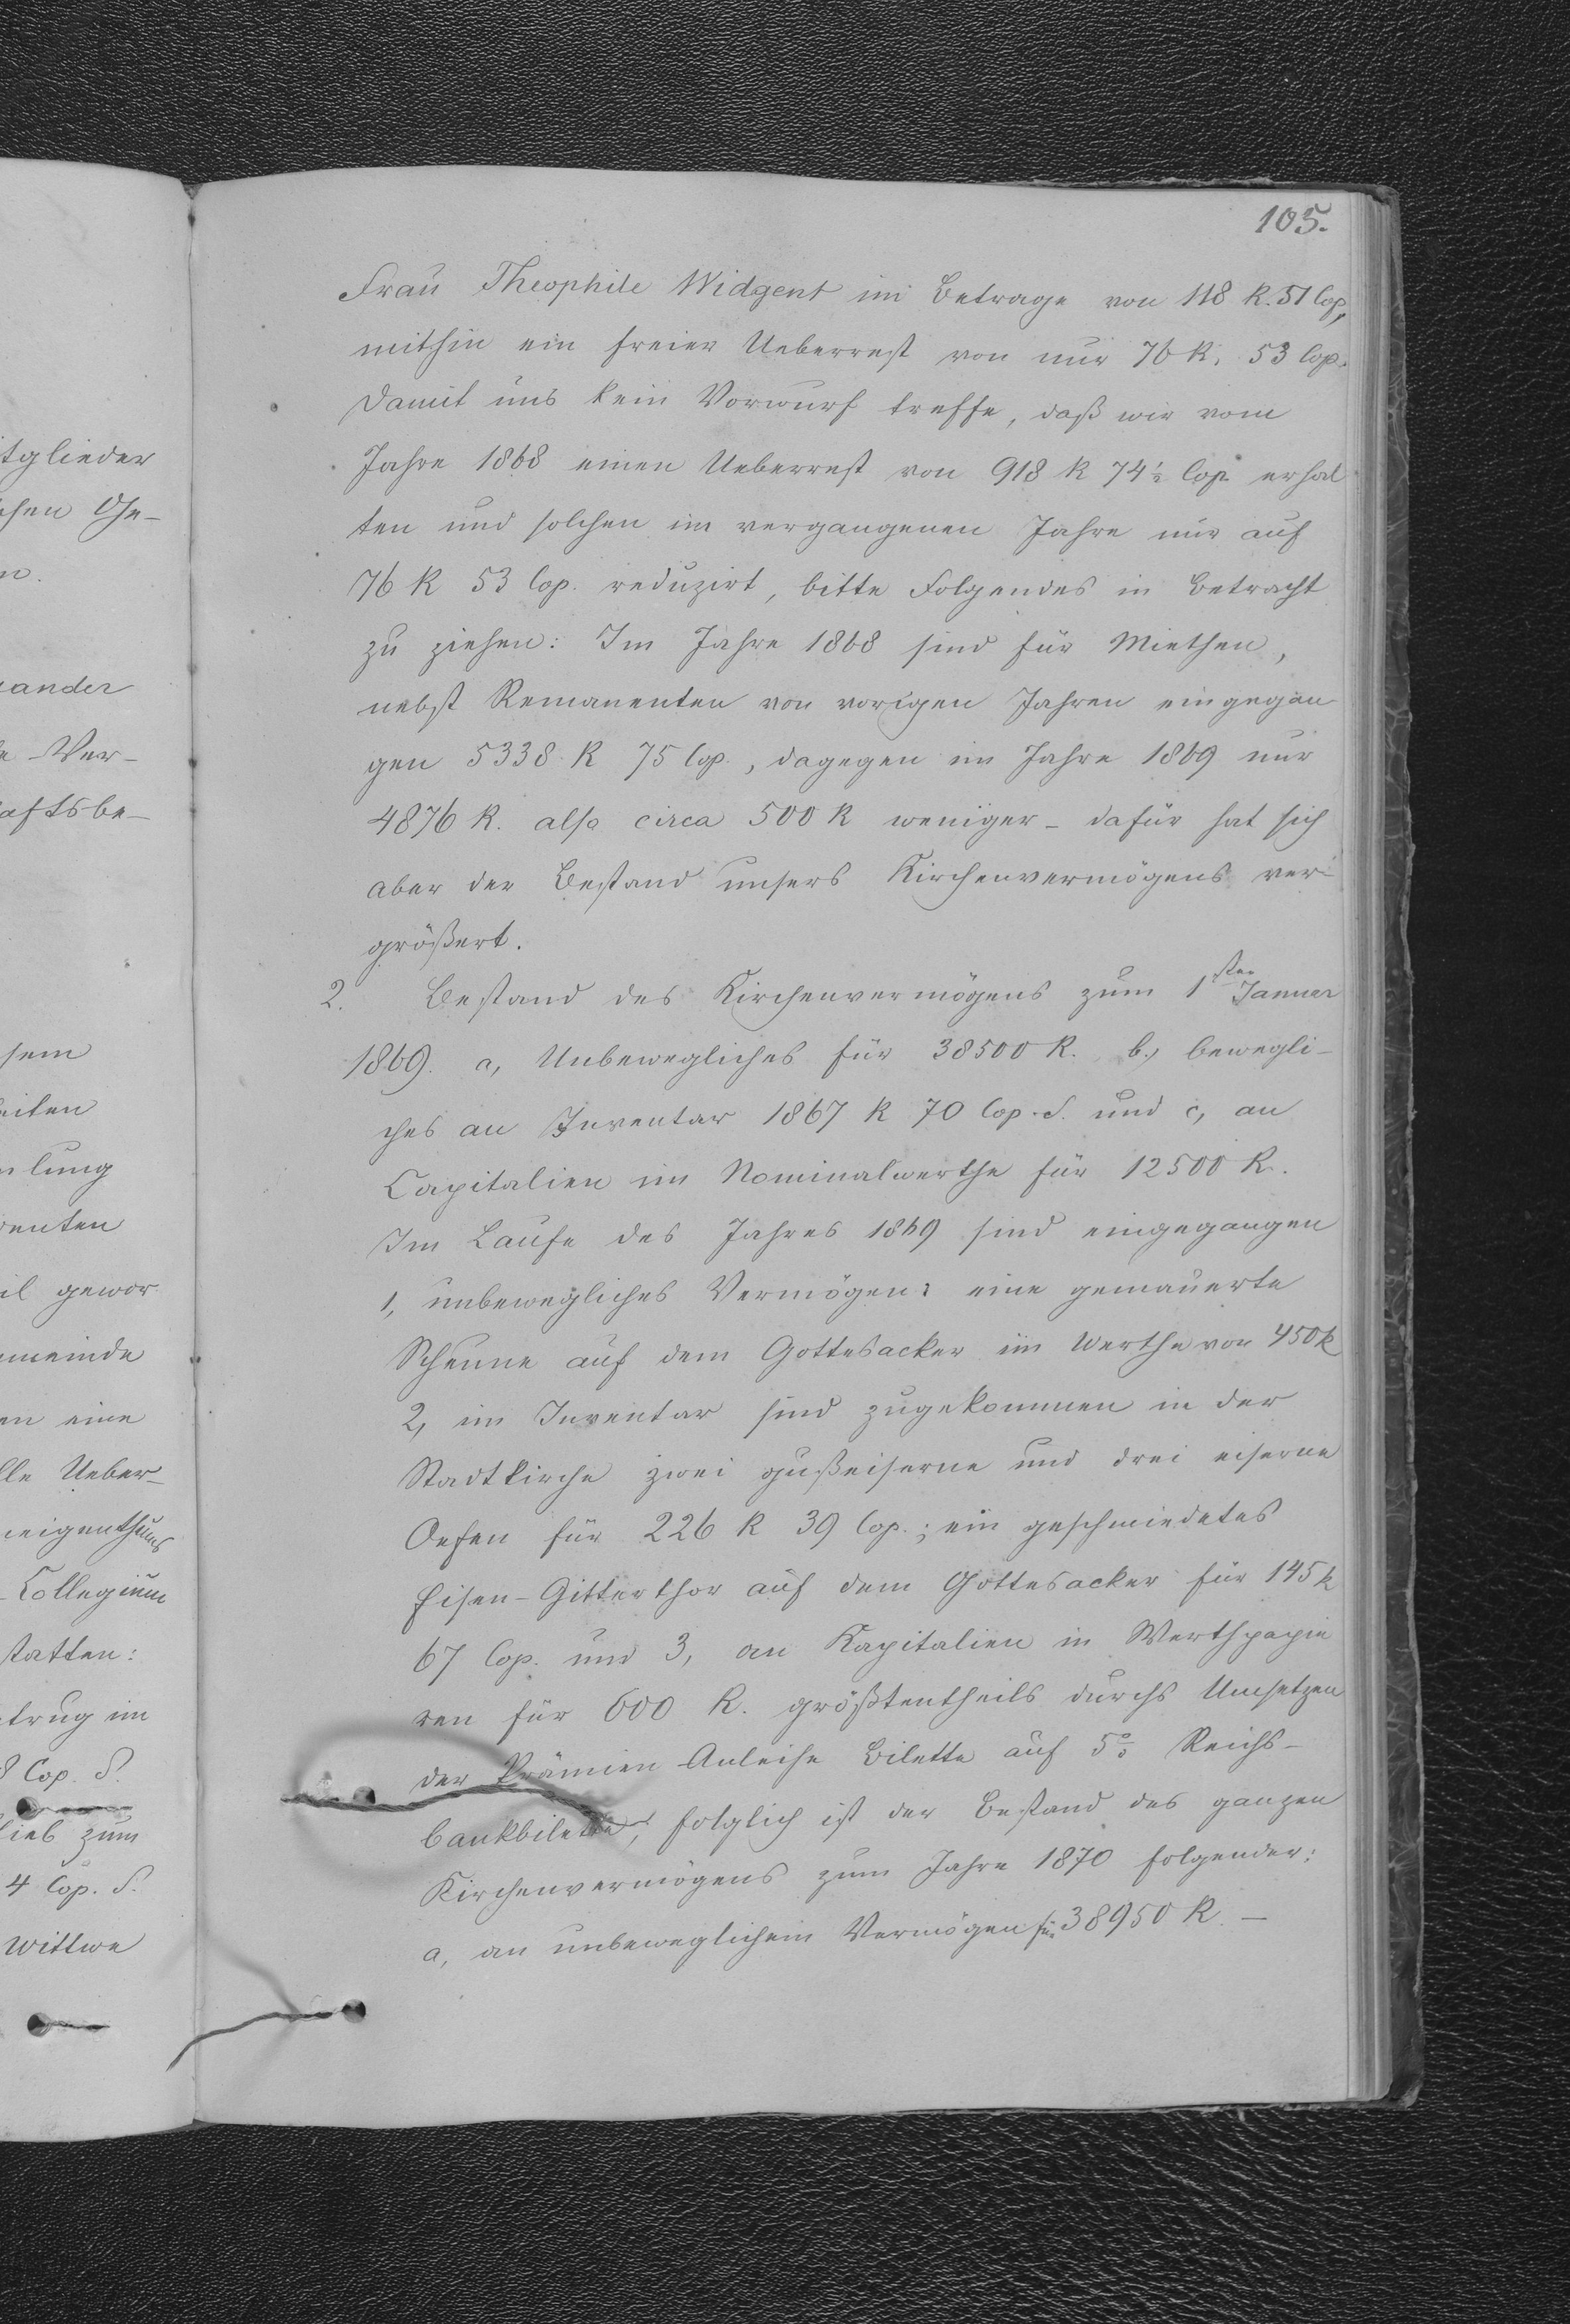 105.
Frau Theophile Widgent im Betrage von 118 R. 51 Cop,
mithin ein freier Ueberrest von nur 76 R. 53 Cop.
Damit uns kein Vorwurf treffe, daß wir vom
Jahre 1868 einen Ueberrest von 918 R 74½ Cop. erhal
ten und solchen im vergangenen Jahre nur auf
76 R 53 Cop. reduzirt, bitte Folgendes in Betracht
zu ziehen: Im Jahre 1868 sind für Miethen,
nebst Remanenten von vorigen Jahren eingegan
gen 5338 R 75 Cop., dagegen im Jahre 1869 nur
4876 R. also circa 500 R weniger - dafür hat sich
aber der Bestand unsers Kirchenvermögens ver-
größert.
2. Bestand des Kirchenvermögens zum 1sten Januar
1869. a, Unbewegliches für 38500 R. b, bewegli-
ches an Inventar 1867 R 70 Cop. S. und c, an
Capitalien im Nominalwerthe für 12500 R.
Im Laufe des Jahres 1869 sind eingegangen
1, unbewegliches Vermögen: eine gemauerte
Scheune auf dem Gottesacker im Werthe von 450 R
2, im Inventar sind zugekommen in der
Stadtkirche zwei gußeiserne und drei eiserne
Oefen für 226 R 39 Cop.; ein geschmiedetes
Eisen-Gitterthor auf dem Gottesacker für 145 R
67 Cop. und 3, an Kapitalien in Werthpapie
ren für 600 R. größtentheils durchs Umsetzen
der Prämien-Anleihe Bilette auf 5% Reichs-
bankbilette, folglich ist der Bestand des ganzen
Kirchenvermögens zum Jahre 1870 folgender:
a, an unbeweglichem Vermögen für 38950 R. -
tglieder
chen Ge-
n.
xander
e Ver-
aftsbe-
sem
eiten
mlung
denten
il gewor
meinde
en eine
lle Ueber-
neigenthums
-Collegium
statten:
trug im
8 Cop. S.
lieb zum
4 Cop. S.
Wittwe